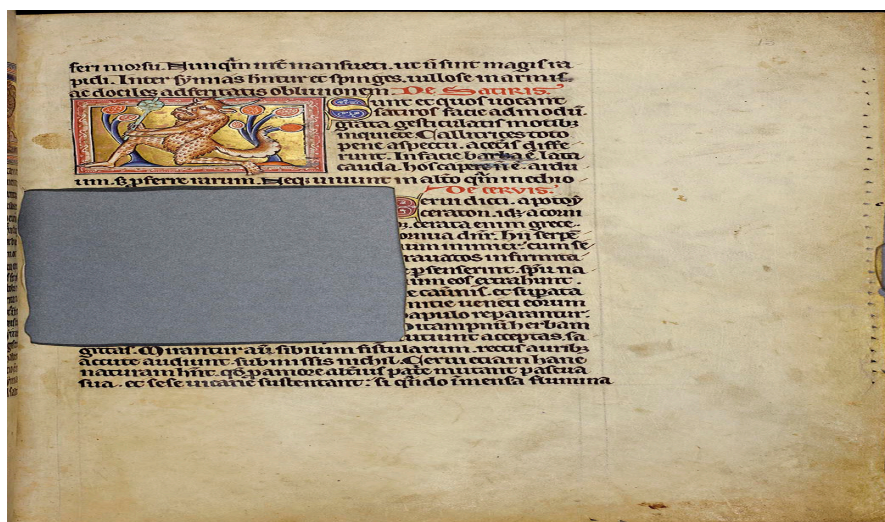 feri morsu. Nunq̄m urt̄ mansueti. ut n̄ sint magis ra
pidi. Inter symias hn̄tur et spinges. uillose in armis.
ac dociles ad feritatis obliuionem. De Satiris.
Sunt et quos uocant
satiros facie admodū
grata gesticulatis motibꝫ
inquiete. Callitrices toto
pene aspectu. a cetis diffe
runt. In facie barba ē. lata
cauda. hos capere n̄ ē. arduū
um. sꝫ pferre rarum. Neqꝫ uiuunt in alto q̄m in ethio
De ceruis.
Cerui dicti. apotoȳ
ceraton. idꝫ a corni
cerata enim grece
ornua dn̄r. hii serpē
inimici. cum se
rauatos infirmita
p senserint. spū na
eos extrahunt.
et supata
nitie ueneti eorum
papulo reparantur.
ditampnū herbam
cutiunt acceptas sa
gittas. Mirantur aū sibilum fistularum. rectis auribꝫ
accute audiunt. submissis nichil. Cerui etiam hanc
naturam hn̄t. qđ p amore altiꝰ pate mutant pascua
sua. et sese uicarie sustentant: si q̄ndo īmensa flumina